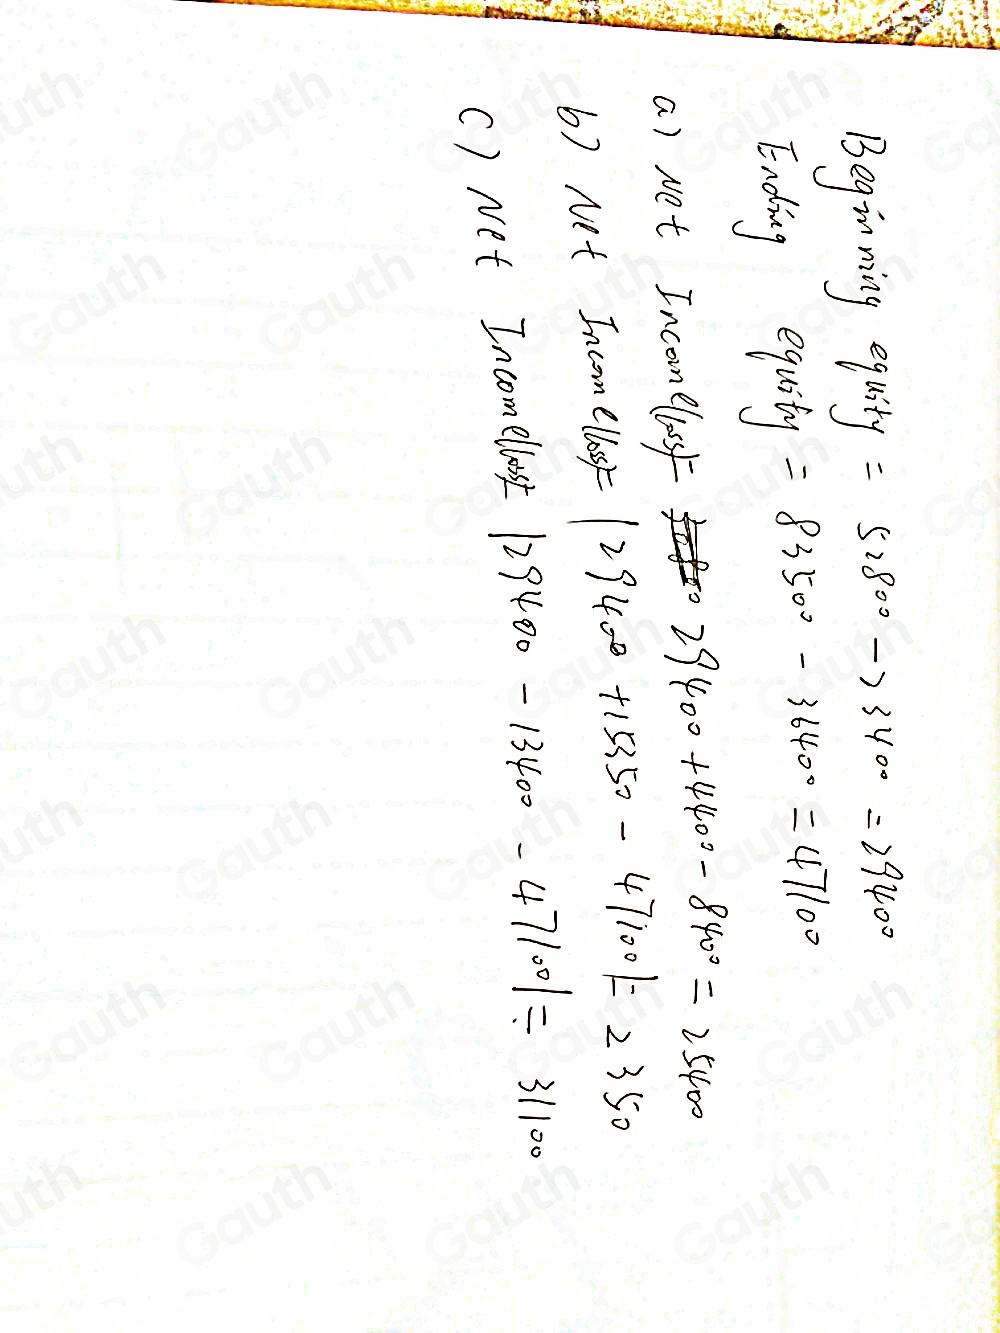 Beginning equity = 52800 -> 3400 = 29400
Ending equity = 83500 - 36400 = 47100
a) Net Income/loss= 29400 + 4400 - 8400 = 25400
b) Net Income/loss= |29400 +15350 - 47100|= 2350
c) Net Income/loss= |29400 - 13400 - 47100| = 31100
Gauth